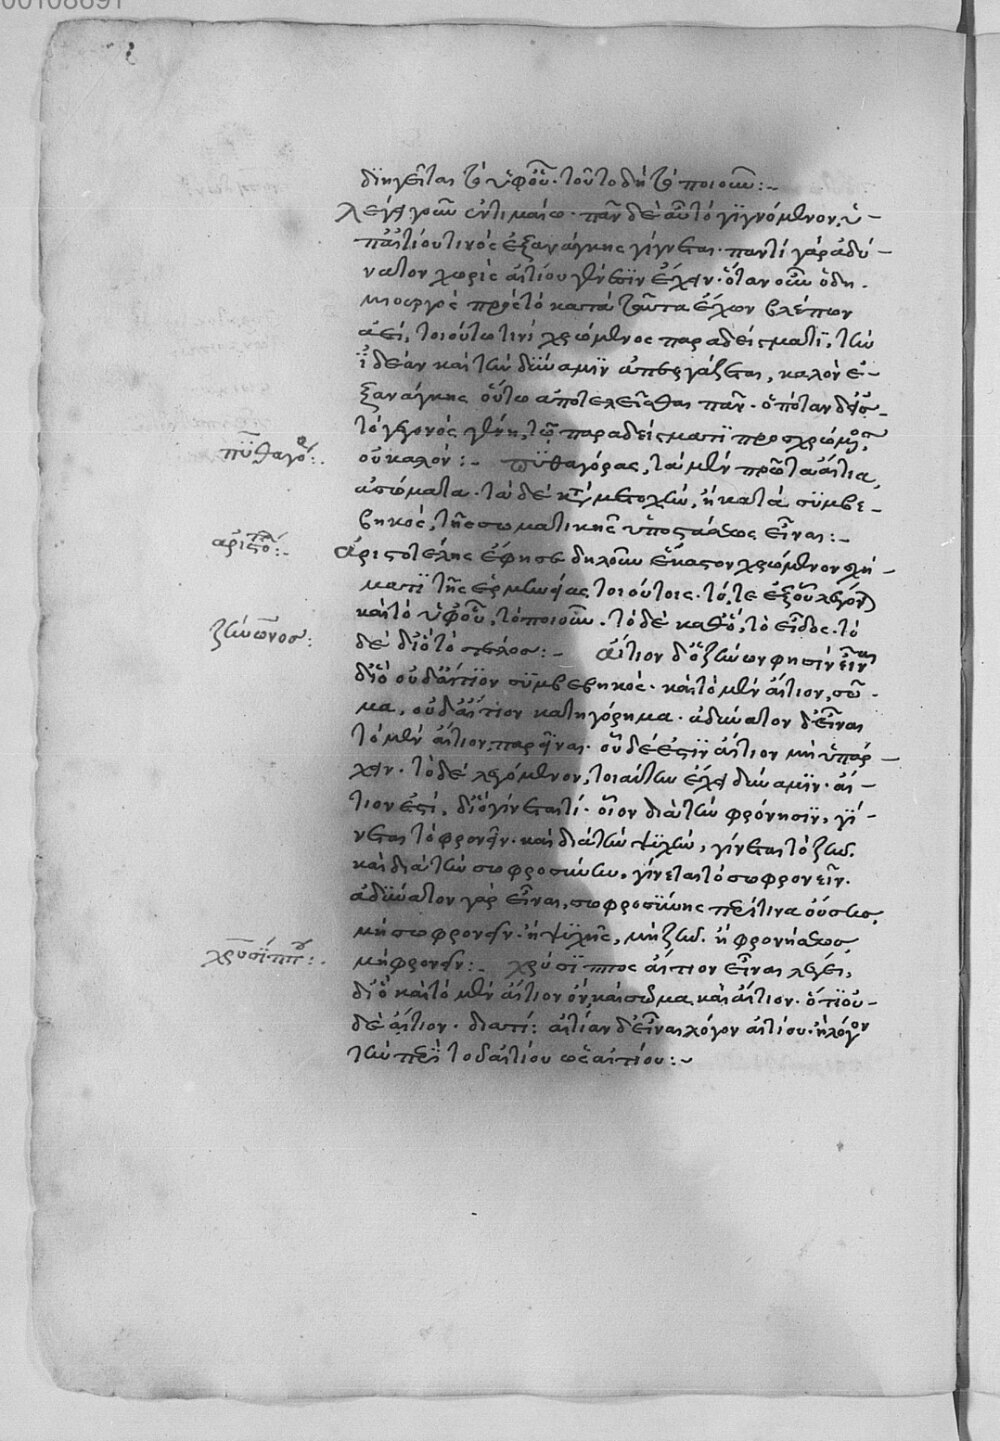 00108691
διηγεῖται τὸ ὑφ' οὗ. τοῦτο δὴ τὸ ποιοῦν:-
λέγει γοῦν ἐν τιμαίω. πᾶν δὲ αὖ τὸ γιγνόμενον, ὑ-
π' αἰτίου τινὸς ἐξ ἀνάγκης γίγνεται. παντὶ γὰρ ἀδύ-
νατον χωρὶς αἰτίου γένεσιν ἔχειν. ὅταν οὖν ὁ δη-
μιουργὸς πρὸς τὸ κατὰ ταῦτα ἔχον βλέπων
ἀεὶ, τοιούτω τινὶ χρώμενος παραδείγματι, τὴν
ἰδέαν καὶ τὴν δύναμιν ἀπεργάζεται, καλὸν ἐ-
ξ ἀνάγκης οὕτω ἀποτελεῖσθαι πᾶν. ὁπόταν δ' εἰς
τὸ γεγονὸς γένη, τῶ παραδείγματι προσχρώμενος
οὐ καλόν:- πυθαγόρας, τὰ μὲν πρῶτα αἴτια,
πυθαγό:.
ἀσώματα. τὰ δὲ κατὰ μετοχὴν, ἢ κατὰ συμβε-
βηκὸς, τῆς σωματικῆς ὑποστάσεως εἶναι:-
ἀριστο:-
ἀριστοτέλης ἔφησε δηλοῦν ἕκαστον χρώμενον σχή-
ματι τῆς ἑρμηνείας τοιούτοις. τό, τε ἐξ οὗ λέγων
καὶ τὸ ὑφ' οὗ, τὸ ποιοῦν. τὸ δὲ καθὸ, τὸ εἶδος. τὸ
ζήνωνος:
δὲ διὸ τὸ τέλος:- αἴτιον δ' ὁ ζήνων φησὶν εἶναι
διὸ οὐδ' αἴτιον συμβεβηκός. καὶ τὸ μὲν αἴτιον, σῶ-
μα, οὐδ' αἴτιον κατηγόρημα. ἀδύνατον δ' εἶναι
τὸ μὲν αἴτιον, παρεῖναι. οὐδέ ἐστιν αἴτιον μὴ ὑπάρ-
χειν. τὸ δὲ λεγόμενον, τοιαύτην ἔχει δύναμιν. αἴ-
τιον ἐστὶ, διὸ γίνεταί τι. οἷον διὰ τὴν φρόνησιν, γί-
νεται τὸ φρονεῖν. καὶ διὰ τὴν ψυχὴν, γίνεται τὸ ζῆν.
καὶ διὰ τὴν σωφροσύνην, γίνεται τὸ σωφρονεῖν.
ἀδύνατον γὰρ εἶναι, σωφροσύνης περί τινα οὔσης,
μὴ σωφρονεῖν. ἢ ψυχῆς, μὴ ζῆν. ἢ φρονήσεως
χρυσίππου:.
μὴ φρονεῖν:- χρύσιππος αἴτιον εἶναι λέγει,
διὸ καὶ τὸ μὲν αἴτιον ὂν, καὶ σῶμα καὶ αἴτιον. ὅτι οὐ-
δὲ αἴτιον. διατί: αἰτίαν δ' εἶναι λόγον αἰτίου. ἢ λόγον
τὴν περὶ τοῦ αἰτίου ὡς αἰτίου:-